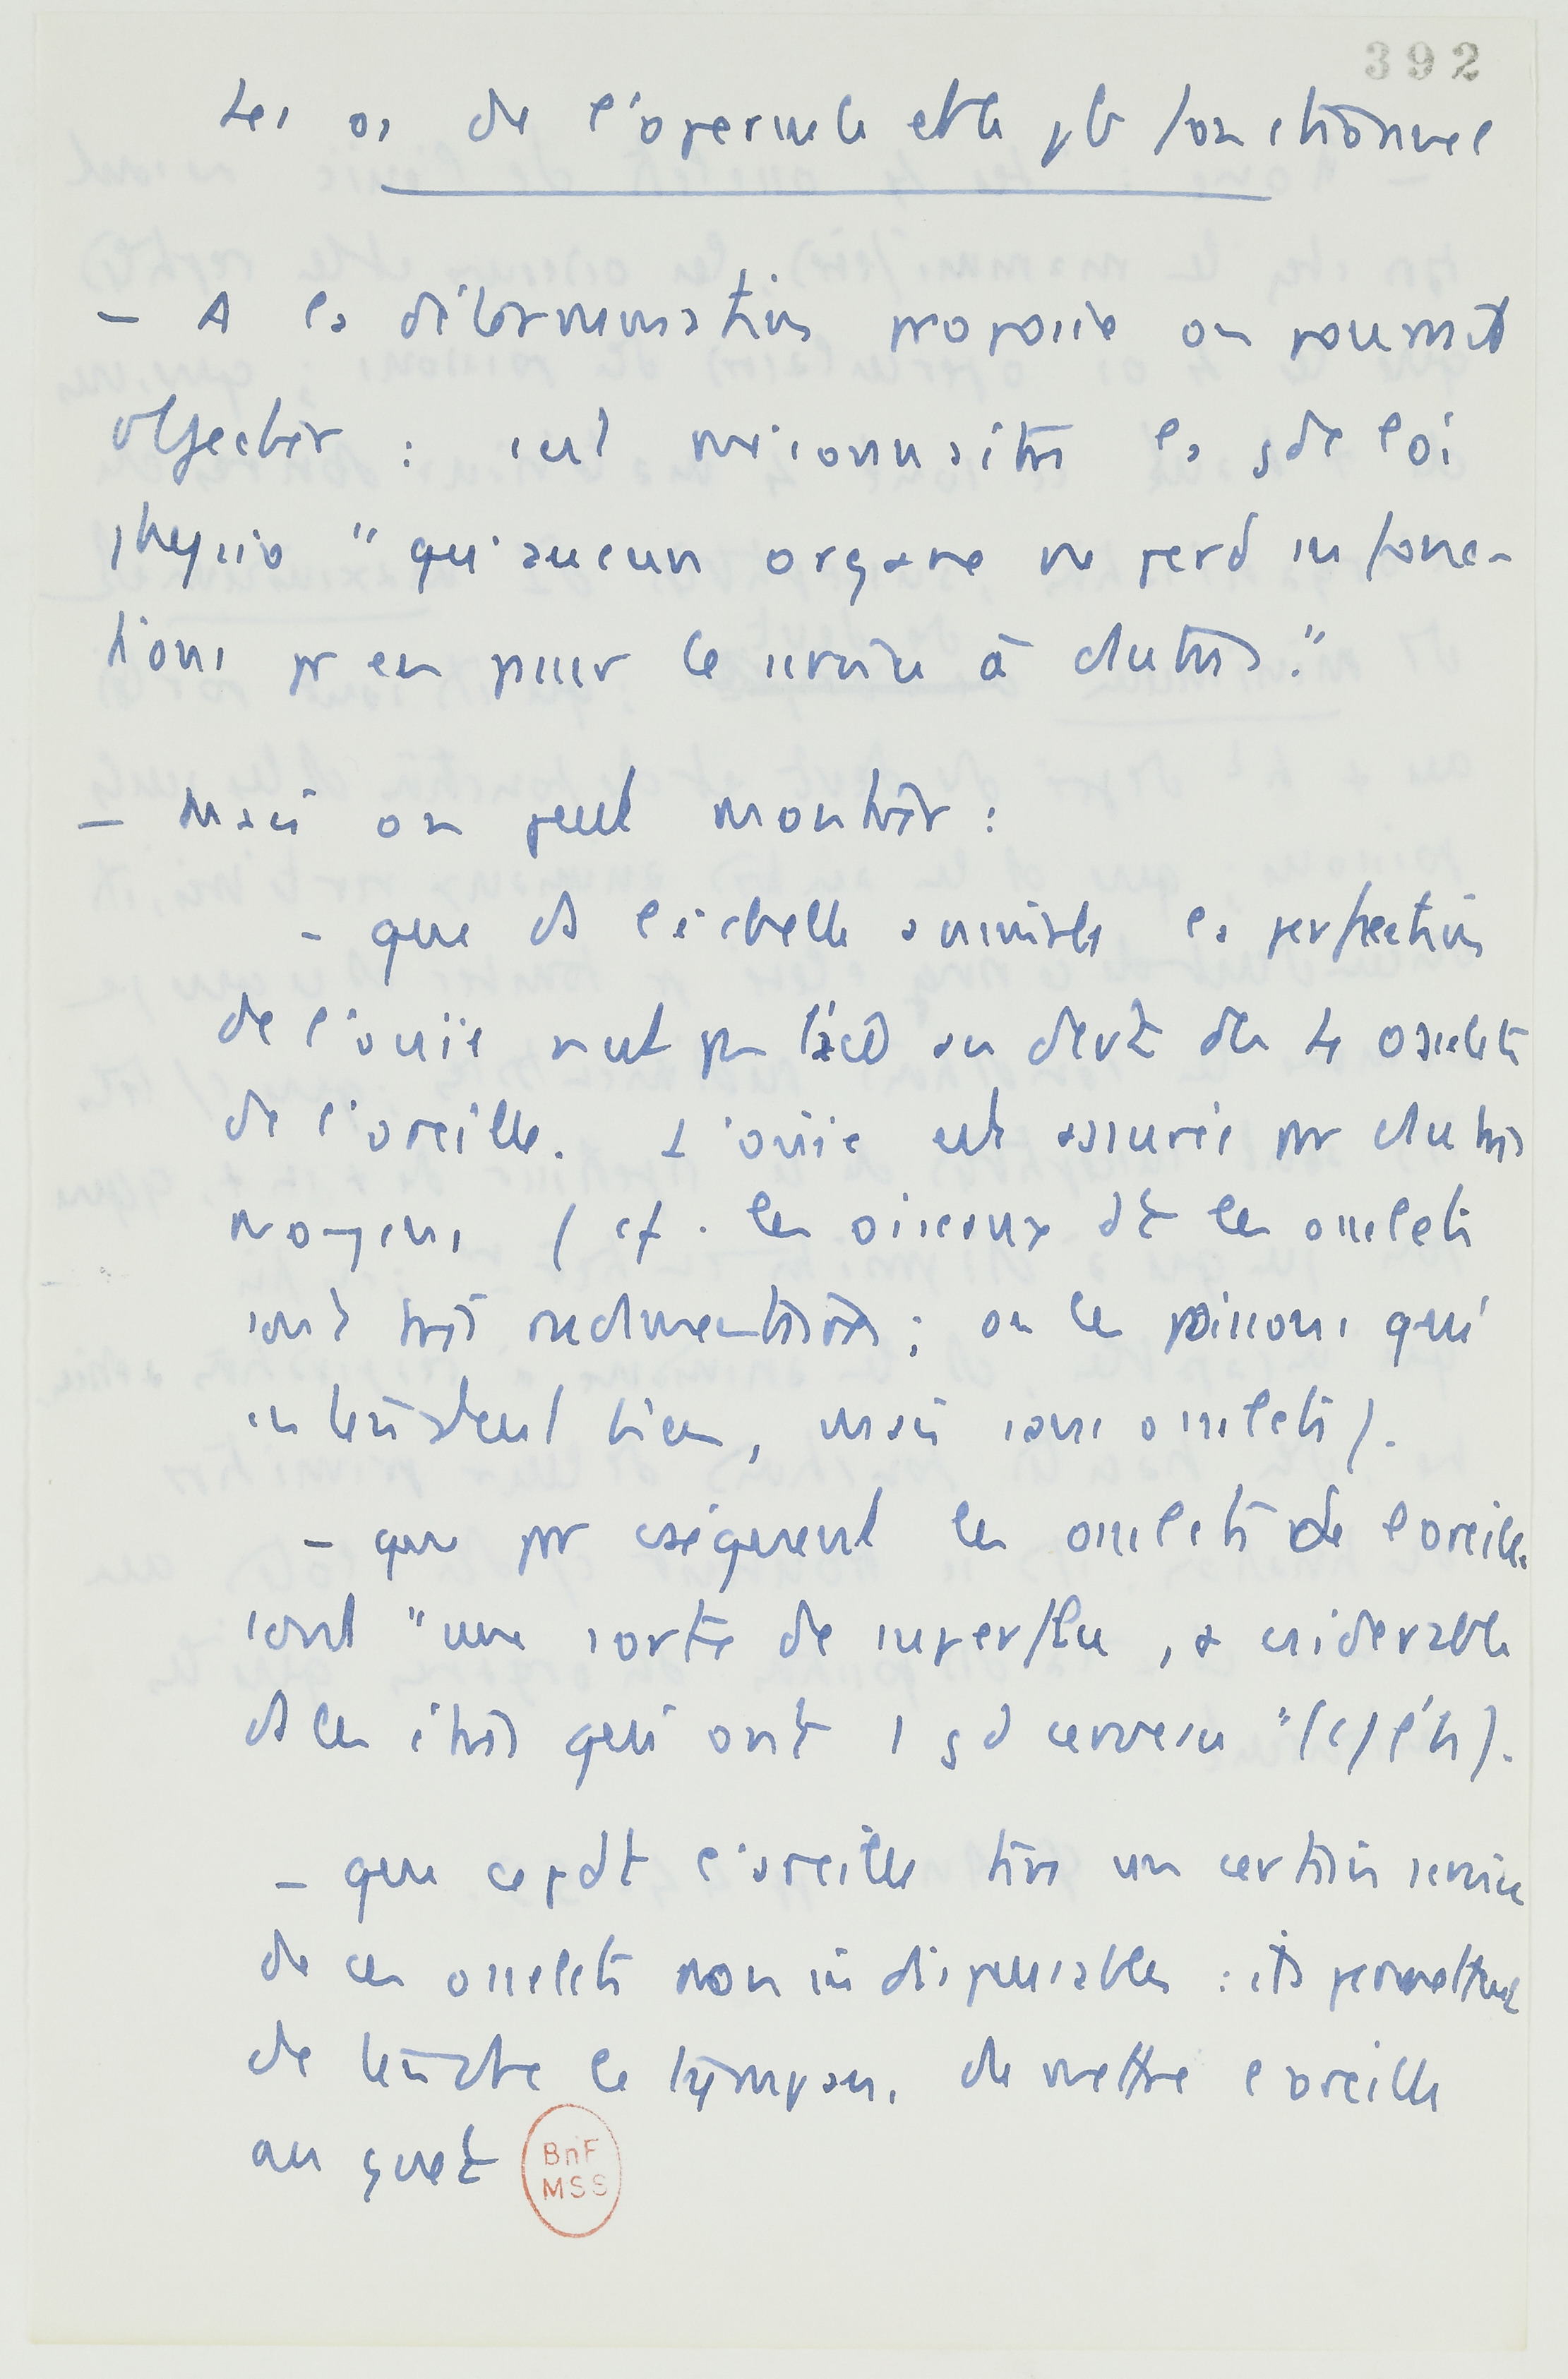 392
Les os de l'opercule et le pb fonctionnel
- A la détermination proposée on pourrait
objecter : c'est méconnaître la gde loi
physio " qu'aucun organe ne perd ses fonc-
tions pr en passer le service à d'autres."
- Mais on peut montrer :
- que ds l'échelle animale la perfection
de l'ouïe n'est pas liée au devt des 4 osselets
de l'oreille. L'ouïe est assurée par d'autres
moyens ( cf. les oiseaux dt les osselets
sont très rudimentaires ; ou les poissons qui
entendent bien, mais sans osselets).
- que par cséquent les osselets de l'oreille
sont "une sorte de superflu, + csidérable
ds les êtres qui ont 1 gd cerveau "
- que cepdt l'oreille tire un certain service
de ces osselets non indispensables : ils permettent
de tendre le tympan, de mettre l'oreille
au guet
BnF
MSS